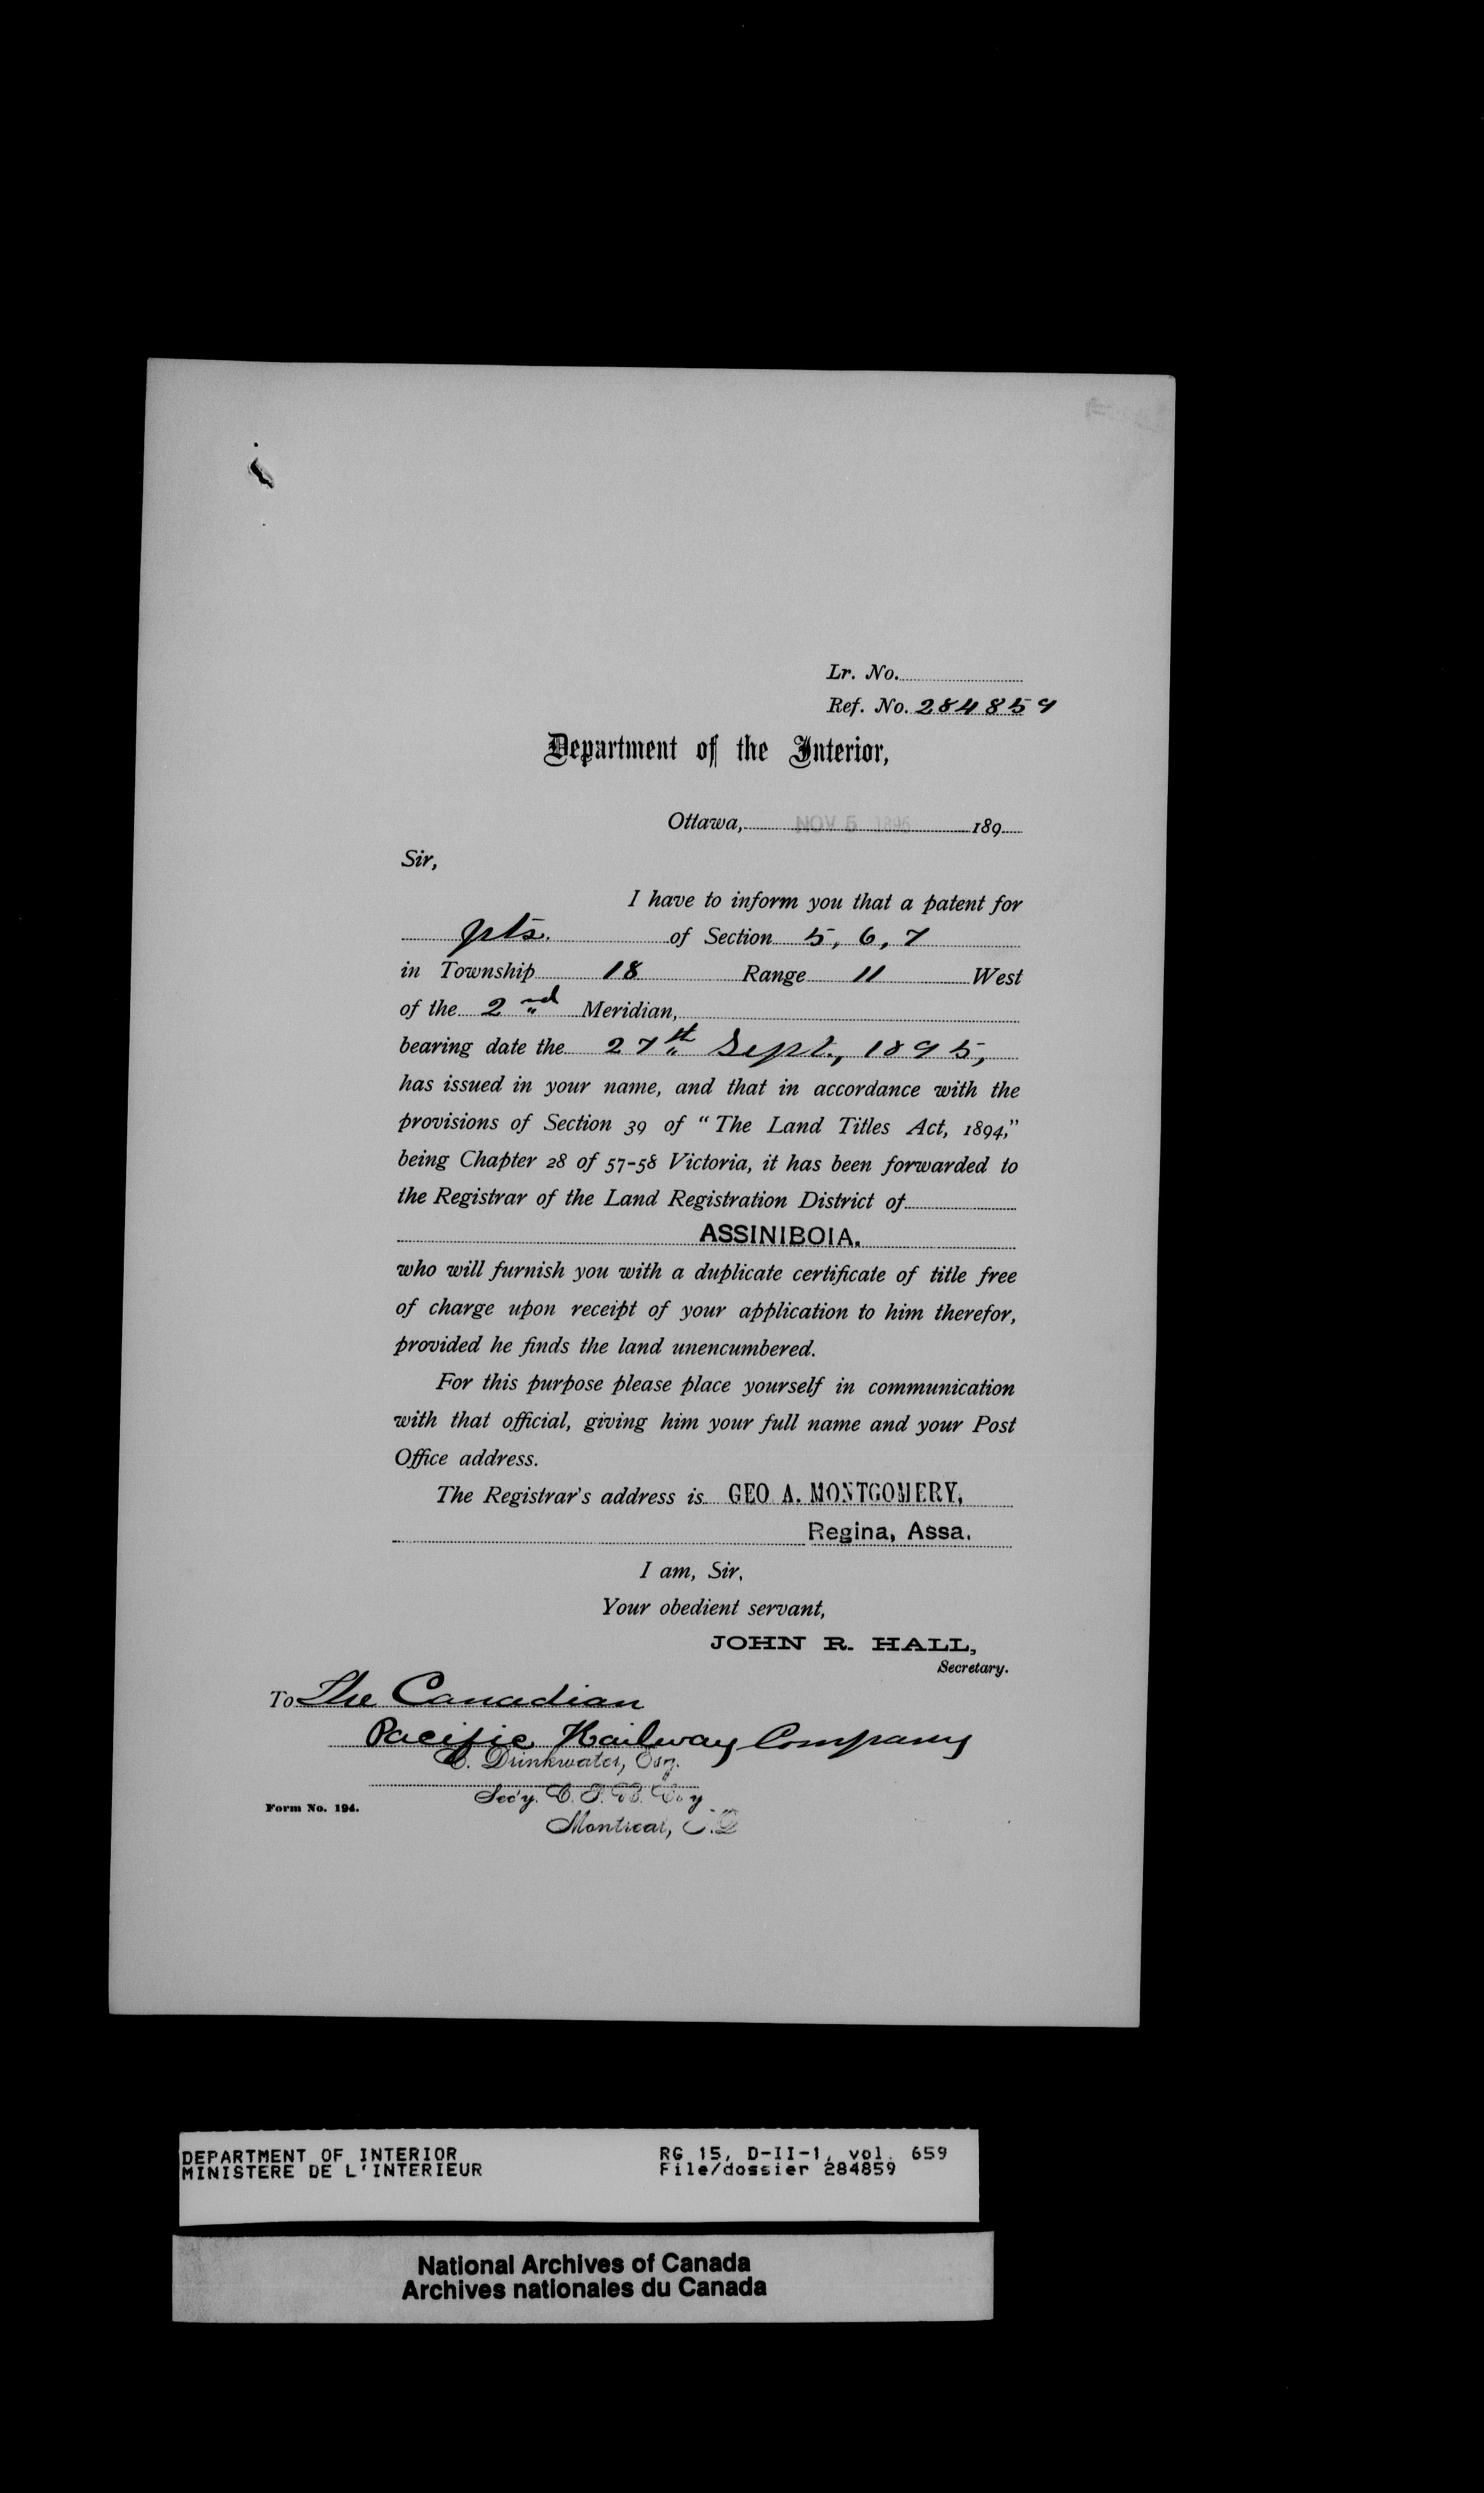 Lr. No.
Ref. No. 284859
Department of the Interior,
Ottawa, NOV 5 189
Sir,
I have to inform you that a patent for
pts. of Section 5, 6, 7
in Township 18 Range 11 West
of the 2nd Meridian,
bearing date the 27th Sept., 1895,
has issued in your name, and that in accordance with the
provisions of Section 39 of "The Land Titles Act, 1894,"
being Chapter 28 of 57-58 Victoria, it has been forwarded to
the Registrar of the Land Registration District of
ASSINIBOIA.
who will furnish you with a duplicate certificate of title free
of charge upon receipt of your application to him therefor,
provided he finds the land unencumbered.
For this purpose please place yourself in communication
with that official, giving him your full name and your Post
Office address.
The Registrar's address is GEO A. MONTGOMERY,
Regina, Assa.
I am, Sir,
Your obedient servant,
JOHN R. HALL,
Secretary.
To The Canadian
Pacific Railway Company
C. Drinkwater, Esq.
Sec'y. C. P. R. Co'y
Montreal, P.Q
Form No. 194.
DEPARTMENT OF INTERIOR RG 15, D-II-1, vol. 659
MINISTERE DE L'INTERIEUR File/dossier 284859
National Archives of Canada
Archives nationales du Canada